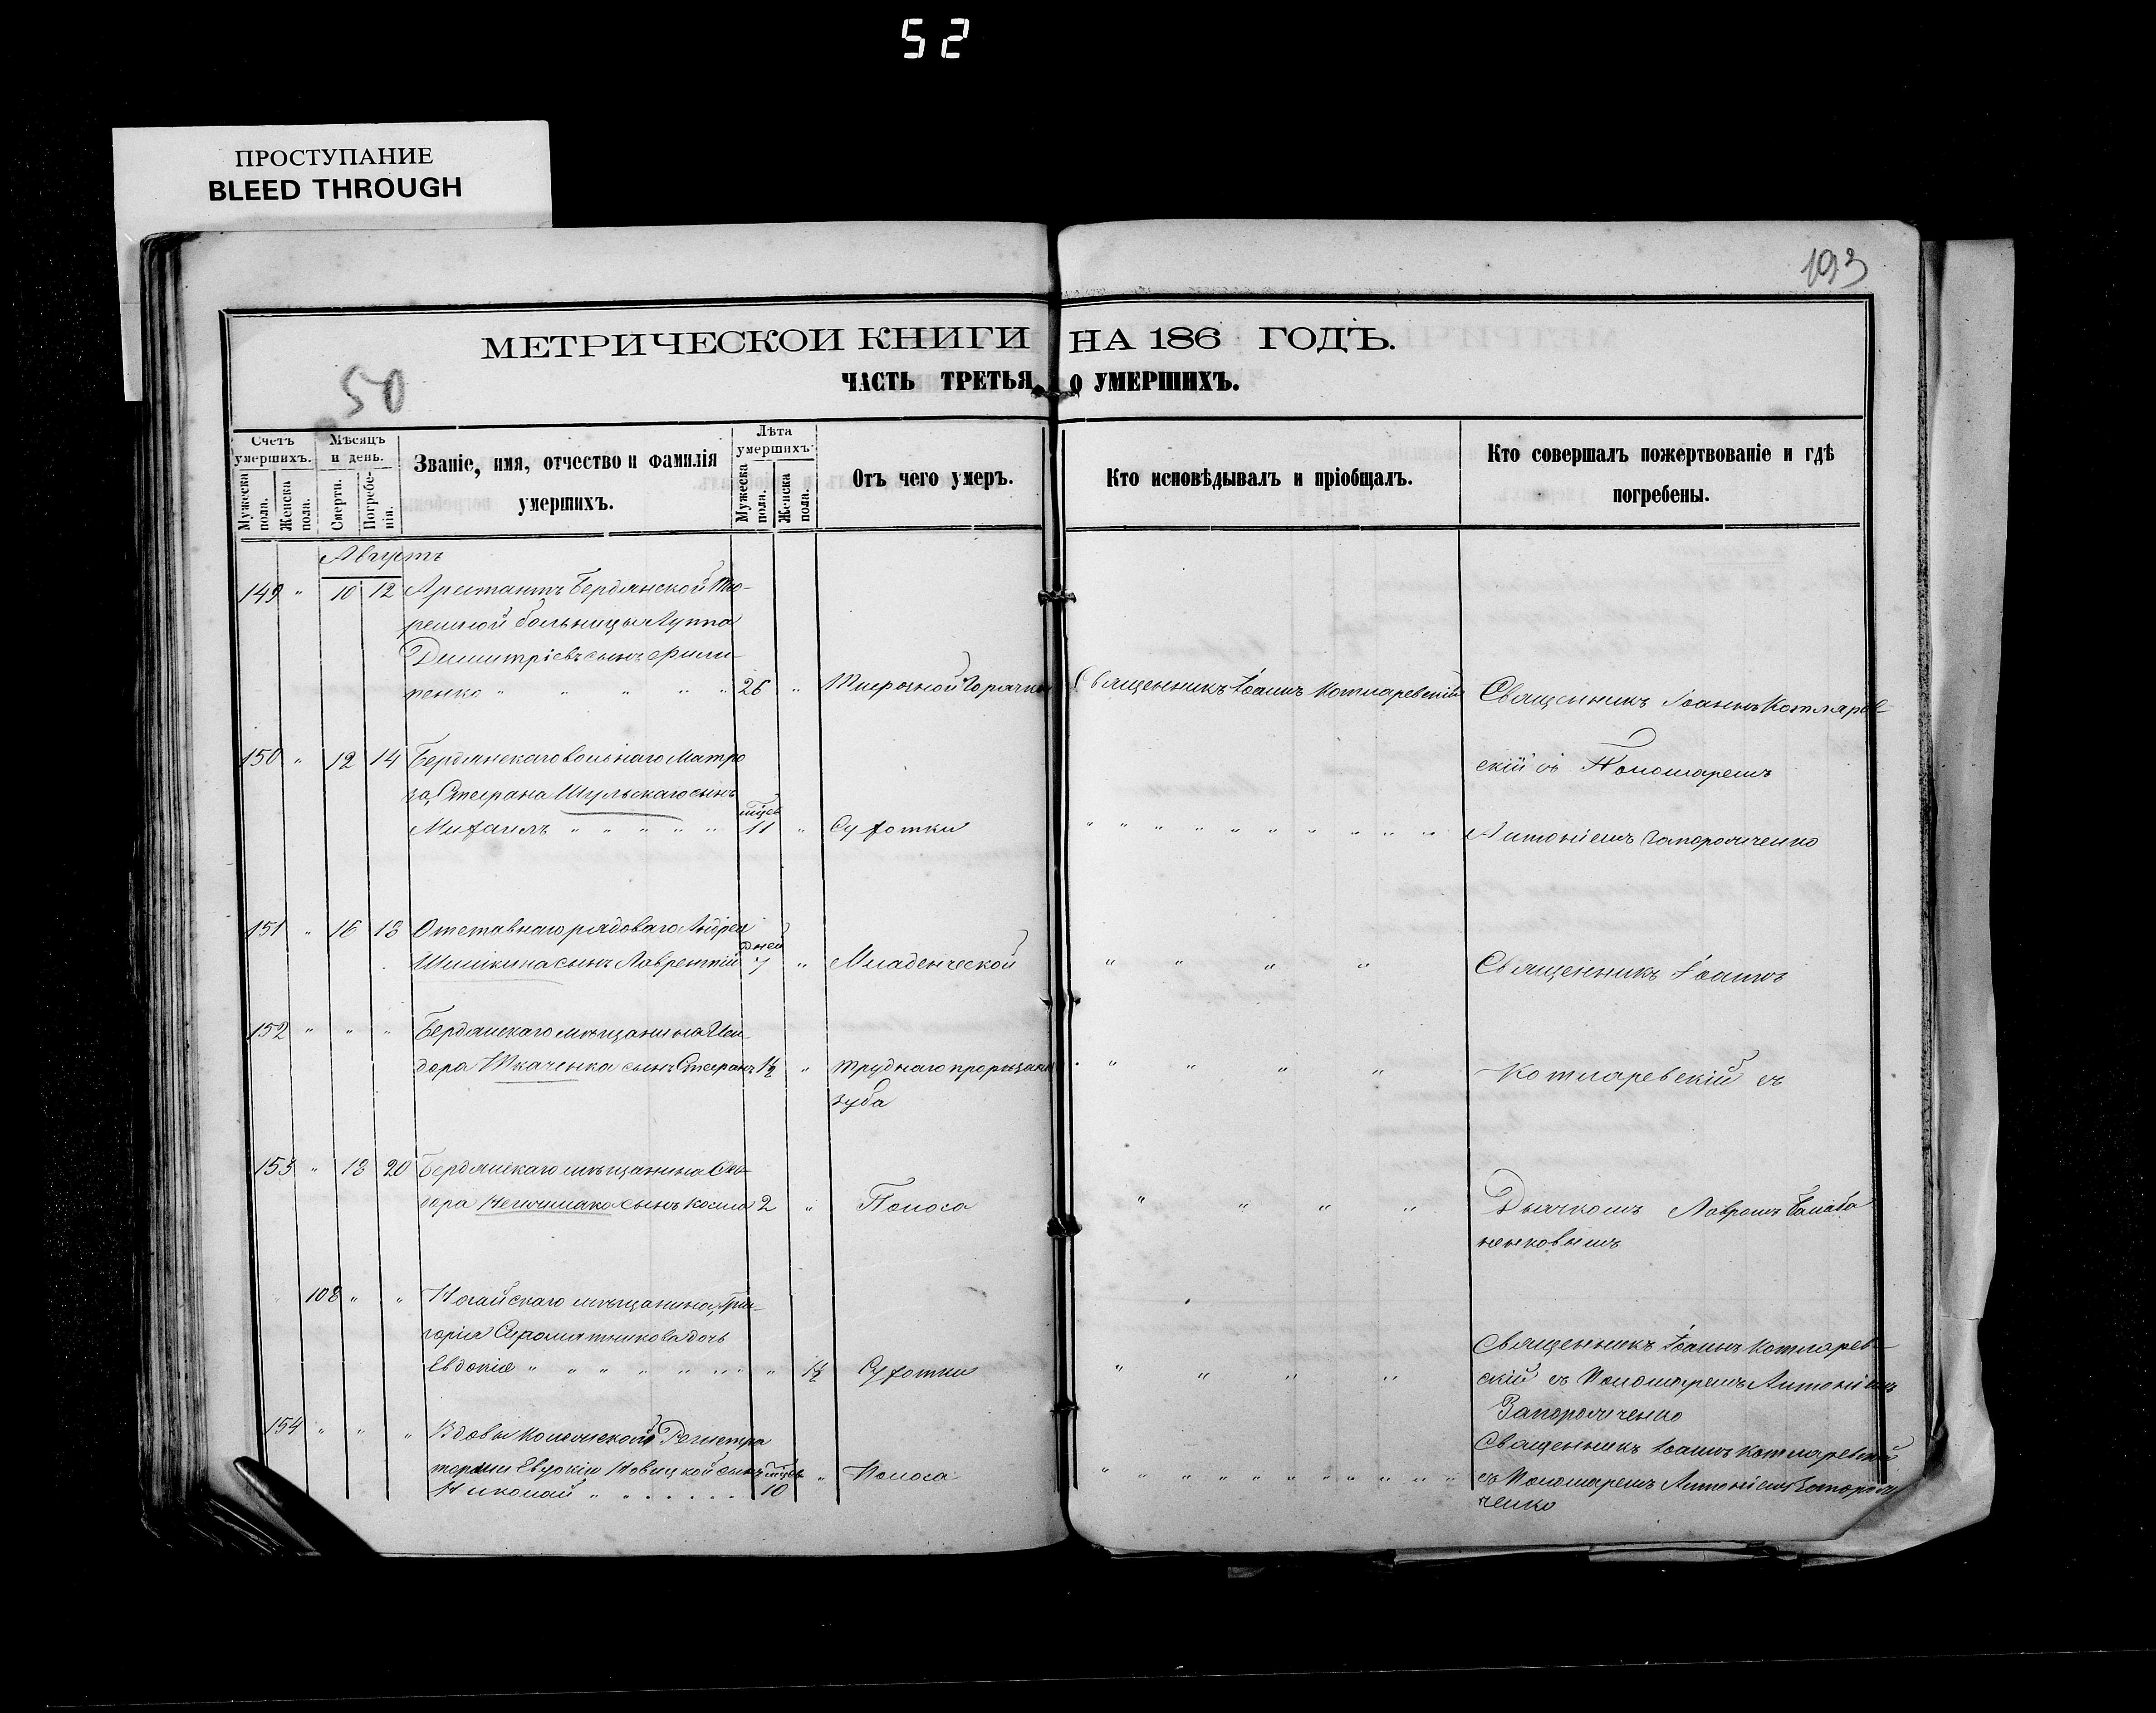 52
ПРОСТУПАНИЕ
BLEED THROUGH
193
МЕТРИЧЕСКОЙ КНИГИ НА 186 ГОДЪ.
50
ЧАСТЬ ТРЕТЬЯ, О УМЕРШИХЪ.
Счетъ умершихъ.
Мужеска пола.
Женска пола.
Мѣсяцъ и день.
Смерти.
Погребенія.
Званіе, имя, отчество и фамилія умершихъ.
Лѣта умершихъ:
Мужеска пола.
Женска пола.
Отъ чего умеръ.
Кто исповѣдывалъ и пріобщалъ.
Кто совершалъ пожертвованіе и гдѣ погребены.
Августъ
149 " 10 12 Арестантъ Бердянской Тю-
ремной больницы Луппа
Димитріевъ сынъ Фили-
пенко " " " " " 26 " Тифозной Горячки Священникъ Іоаннъ Котляревскій Священникъ Іоаннъ Котлярев-
150 " 12 14 Бердянскаго вольнаго Матро
за Стефана Шульскаго сынъ
Михаилъ " " " " " мцев 11 " Сухотки " " " " " " " " " "
скій съ Пономаремъ
Антоніемъ Запорожченко
151 " 16 18 Отставнаго рядоваго Андрея
Шишкина сынъ Лаврентій дней 7 " Младенческой " " " " Священникъ Іоаннъ
152 " " " Бердянскаго мѣщанина Иси-
дора Ткаченка сынъ Стефанъ 1½ " труднаго прорѣзанія " " " " Котляревскій съ
зуба
153 " 18 20 Бердянскаго мѣщанина
дора сынъ Косма 2 " Поноса " " " " Дьячкомъ Лавромъ Балаба
ненковымъ
108 " " Ногайскаго мѣщанина Гри-
горія дочь
Евдокія " " " " " " " 1½ Сухотки " " " "
Священникъ Іоаннъ Котлярев-
скій съ Пономаремъ Антоніемъ
Запорожченко
154 " " " Вдовы Колежской Регистра
торши Евдокіи Новицкой сынъ мцев " Поноса " " " " " " " " " "
Николай " " " " " " 10
Священникъ Іоаннъ Котляревскій
съ Пономаремъ Антоніемъ Запорож
ченко